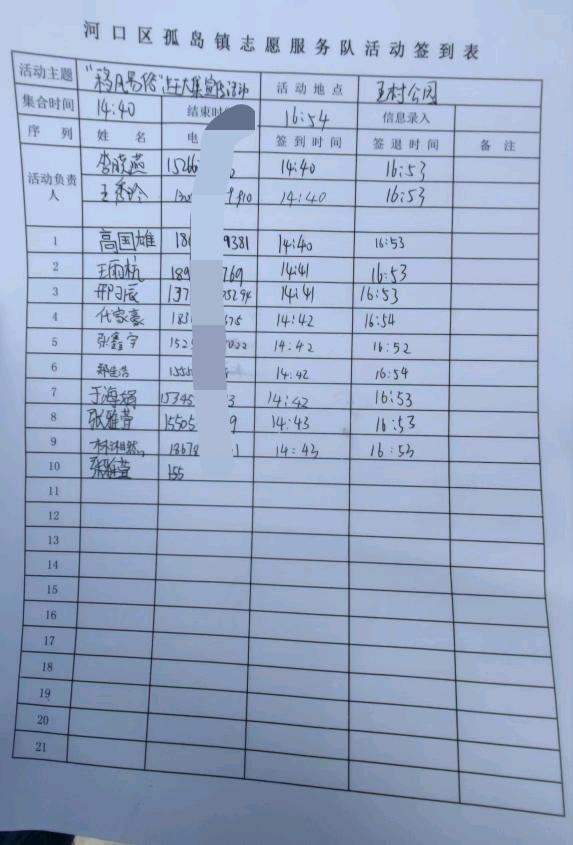 河口区孤岛镇志愿服务队活动签到表
活动主题 "移风易俗" 大集宣传活动 活动地点 王村公园
集合时间 14:40 结束时间 16:54 信息录入
序 列 姓 名 电 签到时间 签退时间 备 注
活动负责人 李晓燕 15266 14:40 16:53
王秀玲 910 14:40 16:53
1 高国雄 18 9381 14:40 16:53
2 王雨杭 189 769 14:41 16:53
3 邢 辰 137 5294 14:41 16:53
4 代家豪 18 675 14:42 16:54
5 张鑫宇 152 022 14:42 16:52
6 14:42 16:54
7 于海 15345 3 14:42 16:53
8 张雅萱 15505 9 14:43 16:53
9 18678 1 14:43 16:53
10 张雅萱 155
11
12
13
14
15
16
17
18
19
20
21